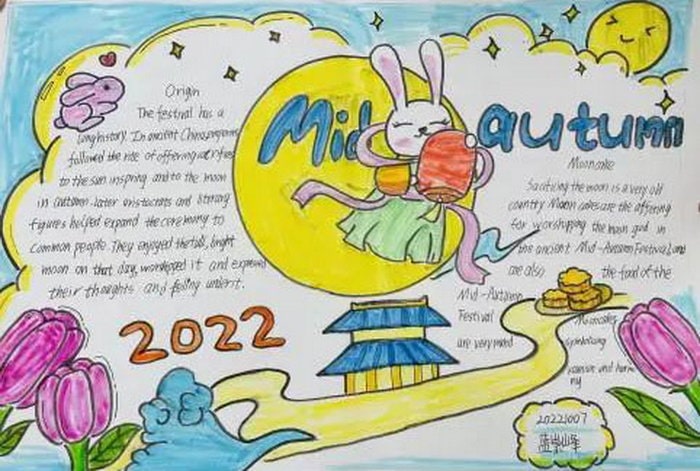 Mid autumn
Origin
The festival has a
long history. In ancient China, emperors
followed the rite of offering
to the sun in spring and to the moon
in autumn later aristocrats and literary
figures helped expand the ceremony to
common people. They enjoyed the full, bright
moon on that day, worshipped it and expressed
their thoughts and feeling under it.
2022
Mooncake
Sacrificing the moon is a very old
country. Moon cakes are the offering
for worshipping the moon god in
the ancient Mid-Autumn Festival, and
are also the food of the
Mid-Autumn
Festival
are very
Mooncakes
symbolising
reunion and harmo
ny
20221007
蓝